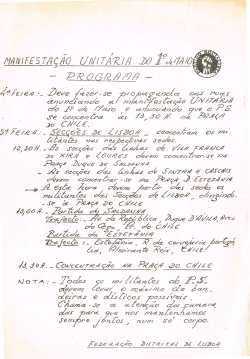 MANIFESTAÇÃO UNITÁRIA DO 1º DE MAIO
- PROGRAMA -
4ª FEIRA:- Deve fazer-se propaganda nas ruas
anunciando a manifestação UNITÁRIA
do 1º de Maio e afirmando que o P.S.
se concentra às 13,30 H. na PRAÇA
DO CHILE.
5ª FEIRA:- SECÇÕES DE LISBOA - concentram os mi-
litantes nas respectivas sedes.
12,30H. - As secções das linhas de VILA FRANCA
DE XIRA e LOURES devem concentrar-se na
PRAÇA DUQUE DE SALDANHA
- As secções das linhas de SINTRA e CASCAIS
devem concentrar-se na PRAÇA D. ESTEFÂNIA
- A esta hora devem partir das sedes os
militantes das Secções de LISBOA, dirigindo-
se à PRAÇA DO CHILE
13,00H. - Partida do SALDANHA
Trajecto: Av. da República, Duque D'ÁVILA,
do CHILE
Partida da ESTEFÂNIA
Trajecto: Estefânia, R.
Almirante Reis, CHILE
13,30H. - CONCENTRAÇÃO NA PRAÇA DO CHILE
NOTA:- Todos os militantes do P.S.
devem levar o máximo de ban-
deiras e dísticos possíveis
Chama-se a atenção da
das para que nos mantenhamos
sempre juntos, num só corpo.
FEDERAÇÃO DISTRITAL DE LISBOA